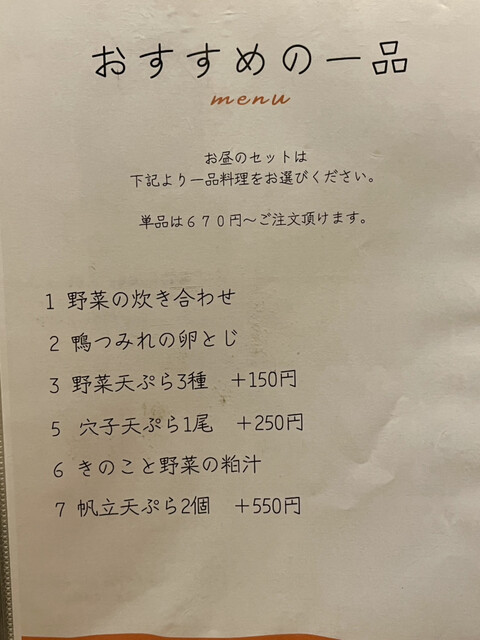 おすすめの一品
menu
お昼のセットは
下記より一品料理をお選びください。
単品は６７０円～ご注文頂けます。
1 野菜の炊き合わせ
2 鴨つみれの卵とじ
3 野菜天ぷら3種　＋150円
5 穴子天ぷら1尾　＋250円
6 きのこと野菜の粕汁
7 帆立天ぷら2個　＋550円